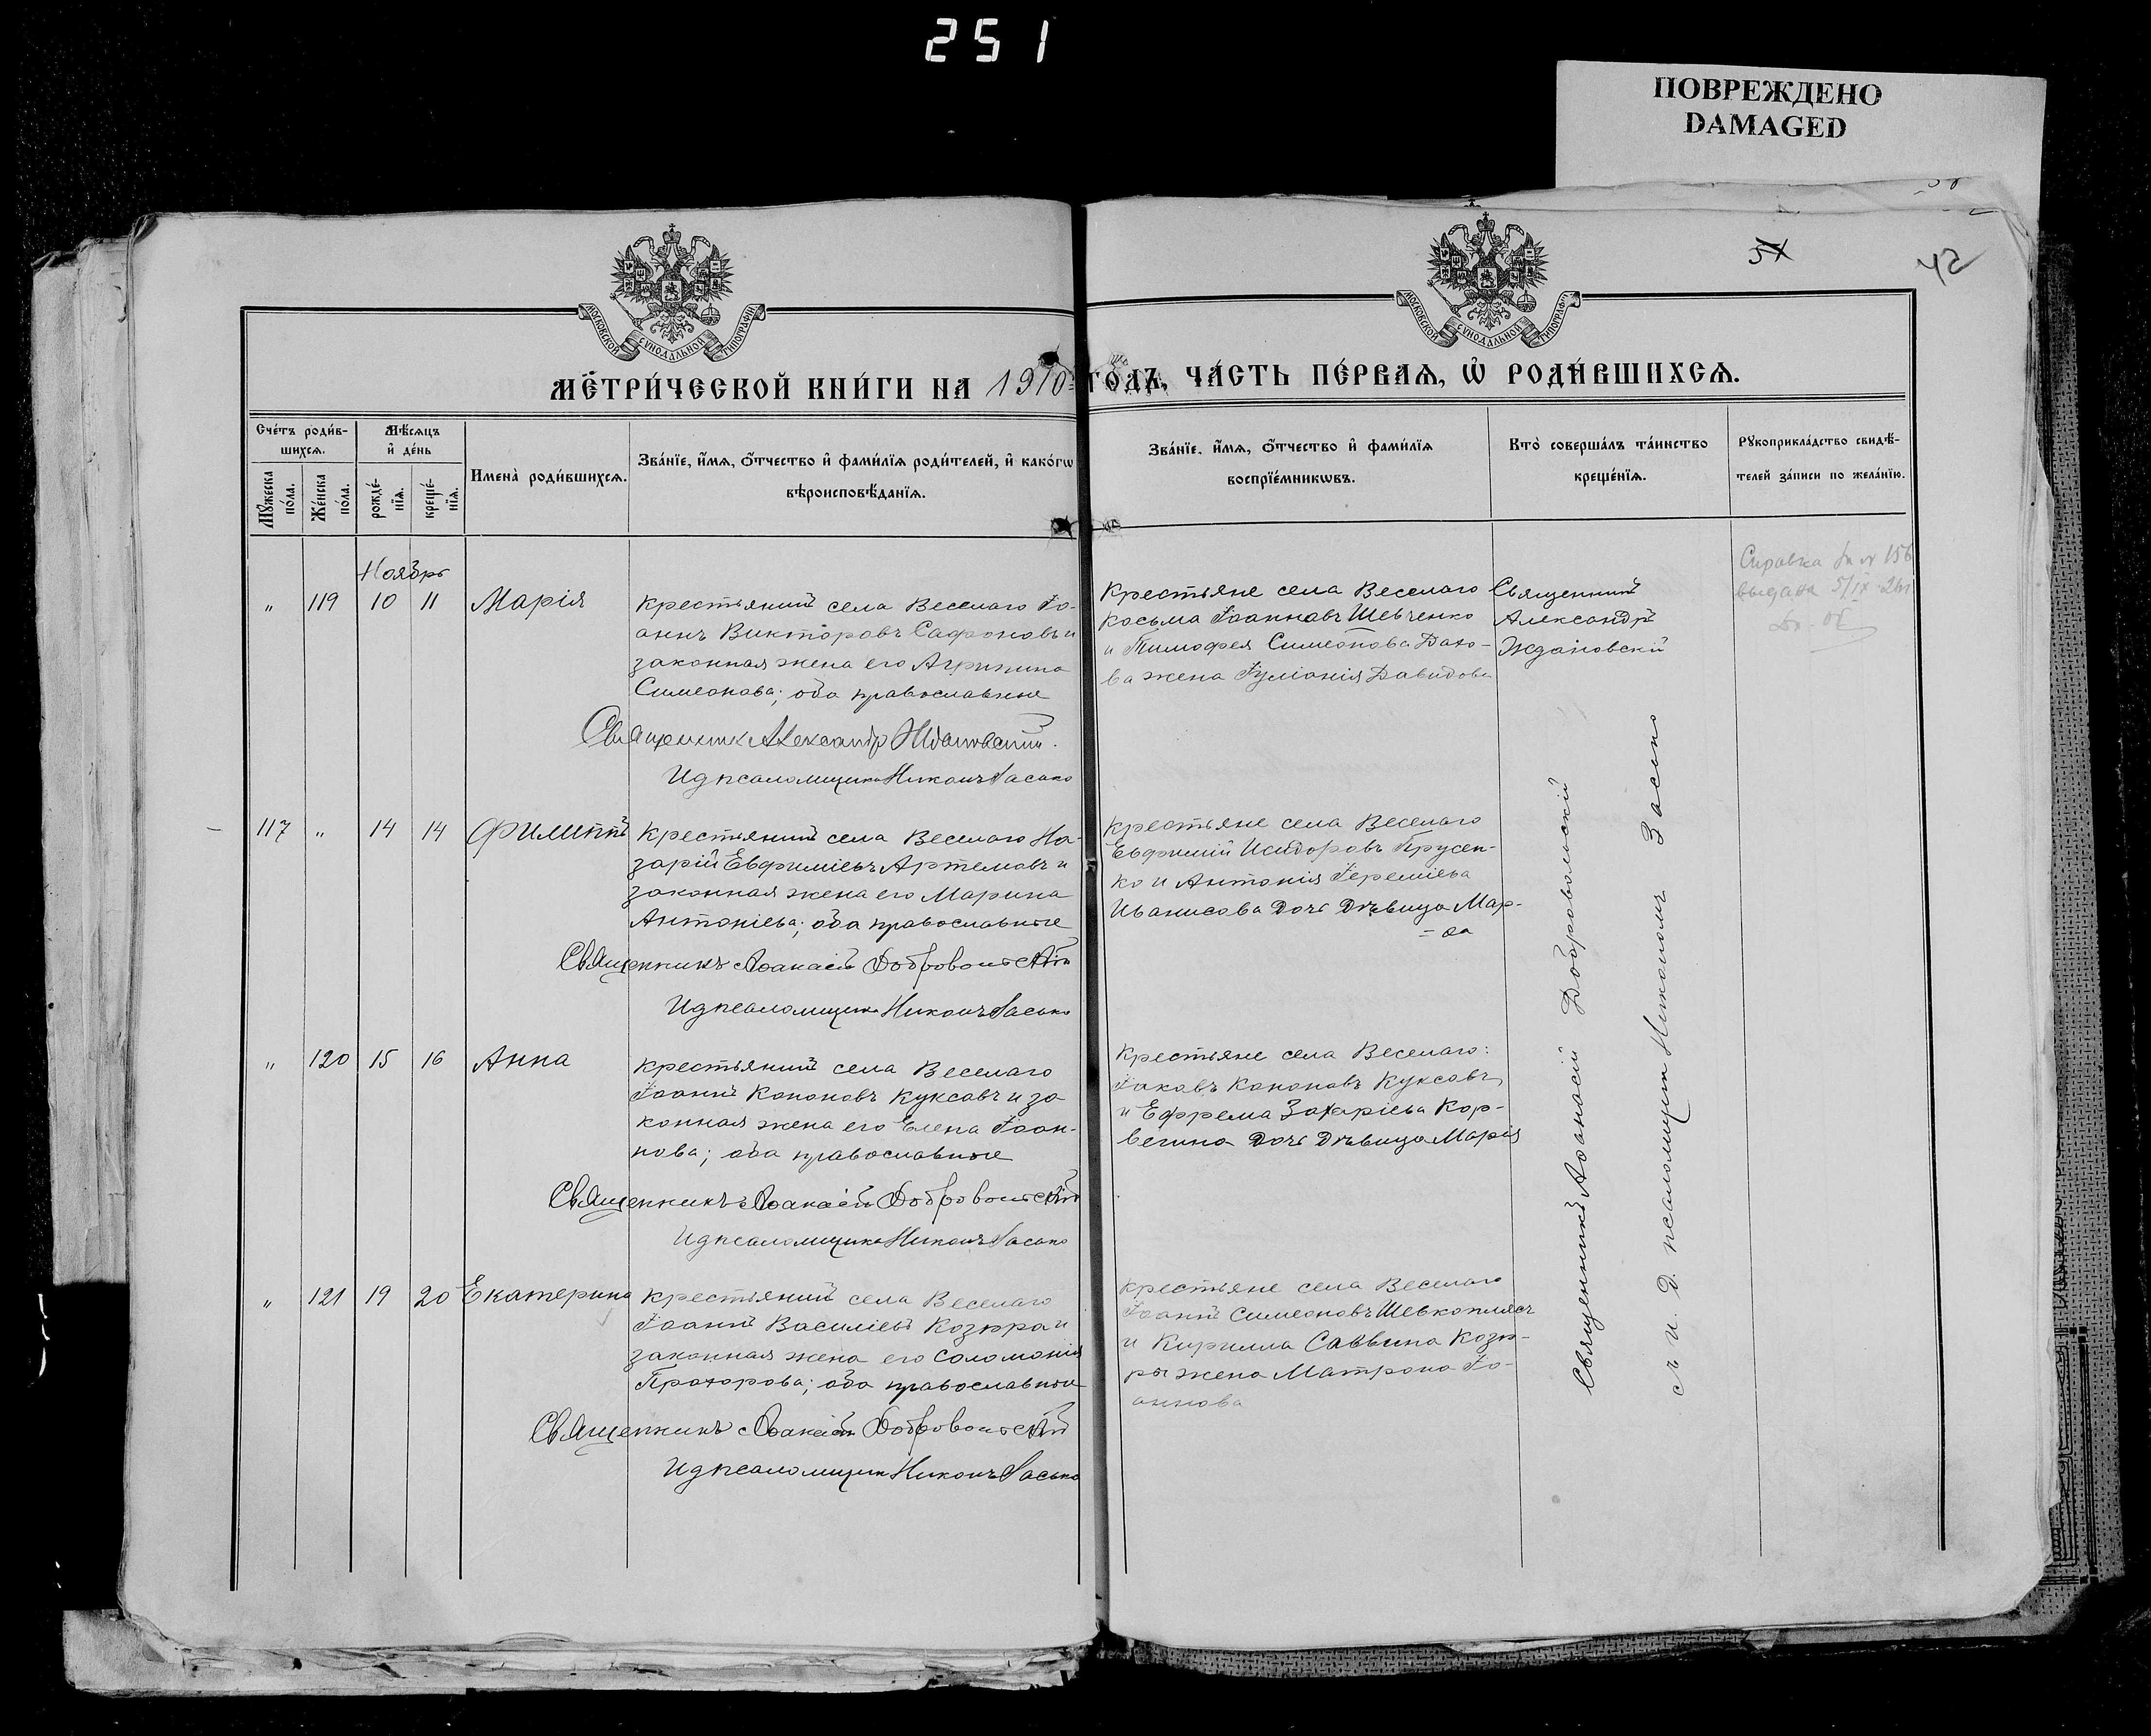 251
ПОВРЕЖДЕНО
DAMAGED
42
МОСКОВСКОЙ СѴНОДАЛЬНОЙ ТИПОГРАФІИ
МОСКОВСКОЙ СѴНОДАЛЬНОЙ ТИПОГРАФІИ
МЕТРИ́ЧЕСКОЙ КНИ́ГИ НА 1910 ГОДЪ, ЧА́СТЬ ПЕ́РВАѦ, Ѡ҆ РОДИ́ВШИХСѦ.
Сче́тъ роди́в-
шихсѧ.
Мꙋ́жеска по́ла.
Же́нска по́ла.
Мѣ́сѧцъ
и҆ де́нь
рожде́-
нїѧ.
креще́-
нїѧ.
Имена̀ роди́вшихсѧ.
Зва́нїе, и҆́мѧ, ѻ҆́тчество и҆ фами́лїѧ роди́телей, и҆ како́гѡ
вѣроисповѣ́данїѧ.
Зва́нїе, и҆́мѧ, ѻ҆́тчество и҆ фами́лїѧ
воспрїе́мникѡвъ.
Кто̀ соверша́лъ та́инство
креще́нїѧ.
Рꙋкоприкла́дство свидѣ́-
телей за́писи по жела́нїю.
Ноябрь
" 119 10 11 Марія
Крестьянинъ села Веселаго Іо-
аннъ Викторовъ Сафоновъ и
законная жена его Агрипина
Симеонова; оба православные
Священникъ Александр Ждановскій.
И д псаломщика Никонъ Засько
Крестьяне села Веселаго
Косьма Іоанновъ Шевченко
и Тимофея Симеонова Дахо-
ва жена Іуліанія Давидова
Священникъ
Александръ
Ждановскій
Справка
выдана 5/IX
117 " 14 14 Филиппъ
Крестьянинъ села Веселаго На-
зарій Евфиміевъ Артемовъ и
законная жена его Марина
Антоніева; оба православные
Священникъ Аѳанасій Добровольскій
И д псаломщика Никонъ Засько
Крестьяне села Веселаго
Евфимій Исидоровъ Прусен-
ко и Антонія Іереміева
Иванисова дочь дѣвица Мар-
=ѳа
" 120 15 16 Анна
Крестьянинъ села Веселаго
Іоаннъ Кононовъ Куксовъ и за
конная жена его Елена Іоан-
нова; оба православные
Священникъ Аѳанасій Добровольскій
И д псаломщика Никонъ Засько
Крестьяне села Веселаго:
Іаковъ Кононовъ Куксовъ
и Ефрема Захаріева Кор-
вегина дочь дѣвица Марія
" 121 19 20 Екатерина
Крестьянинъ села Веселаго
Іоаннъ Василіевъ Козыра и
законная жена его Соломонія
Прохорова; оба православные
Священникъ Аѳанасій Добровольскій
И д псаломщика Никонъ Засько
Крестьяне села Веселаго
Іоаннъ Симеоновъ Шевкоплясъ
и Кирилла Саввина Козы-
ры жена Матрона Іо-
аннова
Священникъ Аѳанасій Добровольскій
съ и. д. псаломщик Никономъ Засько